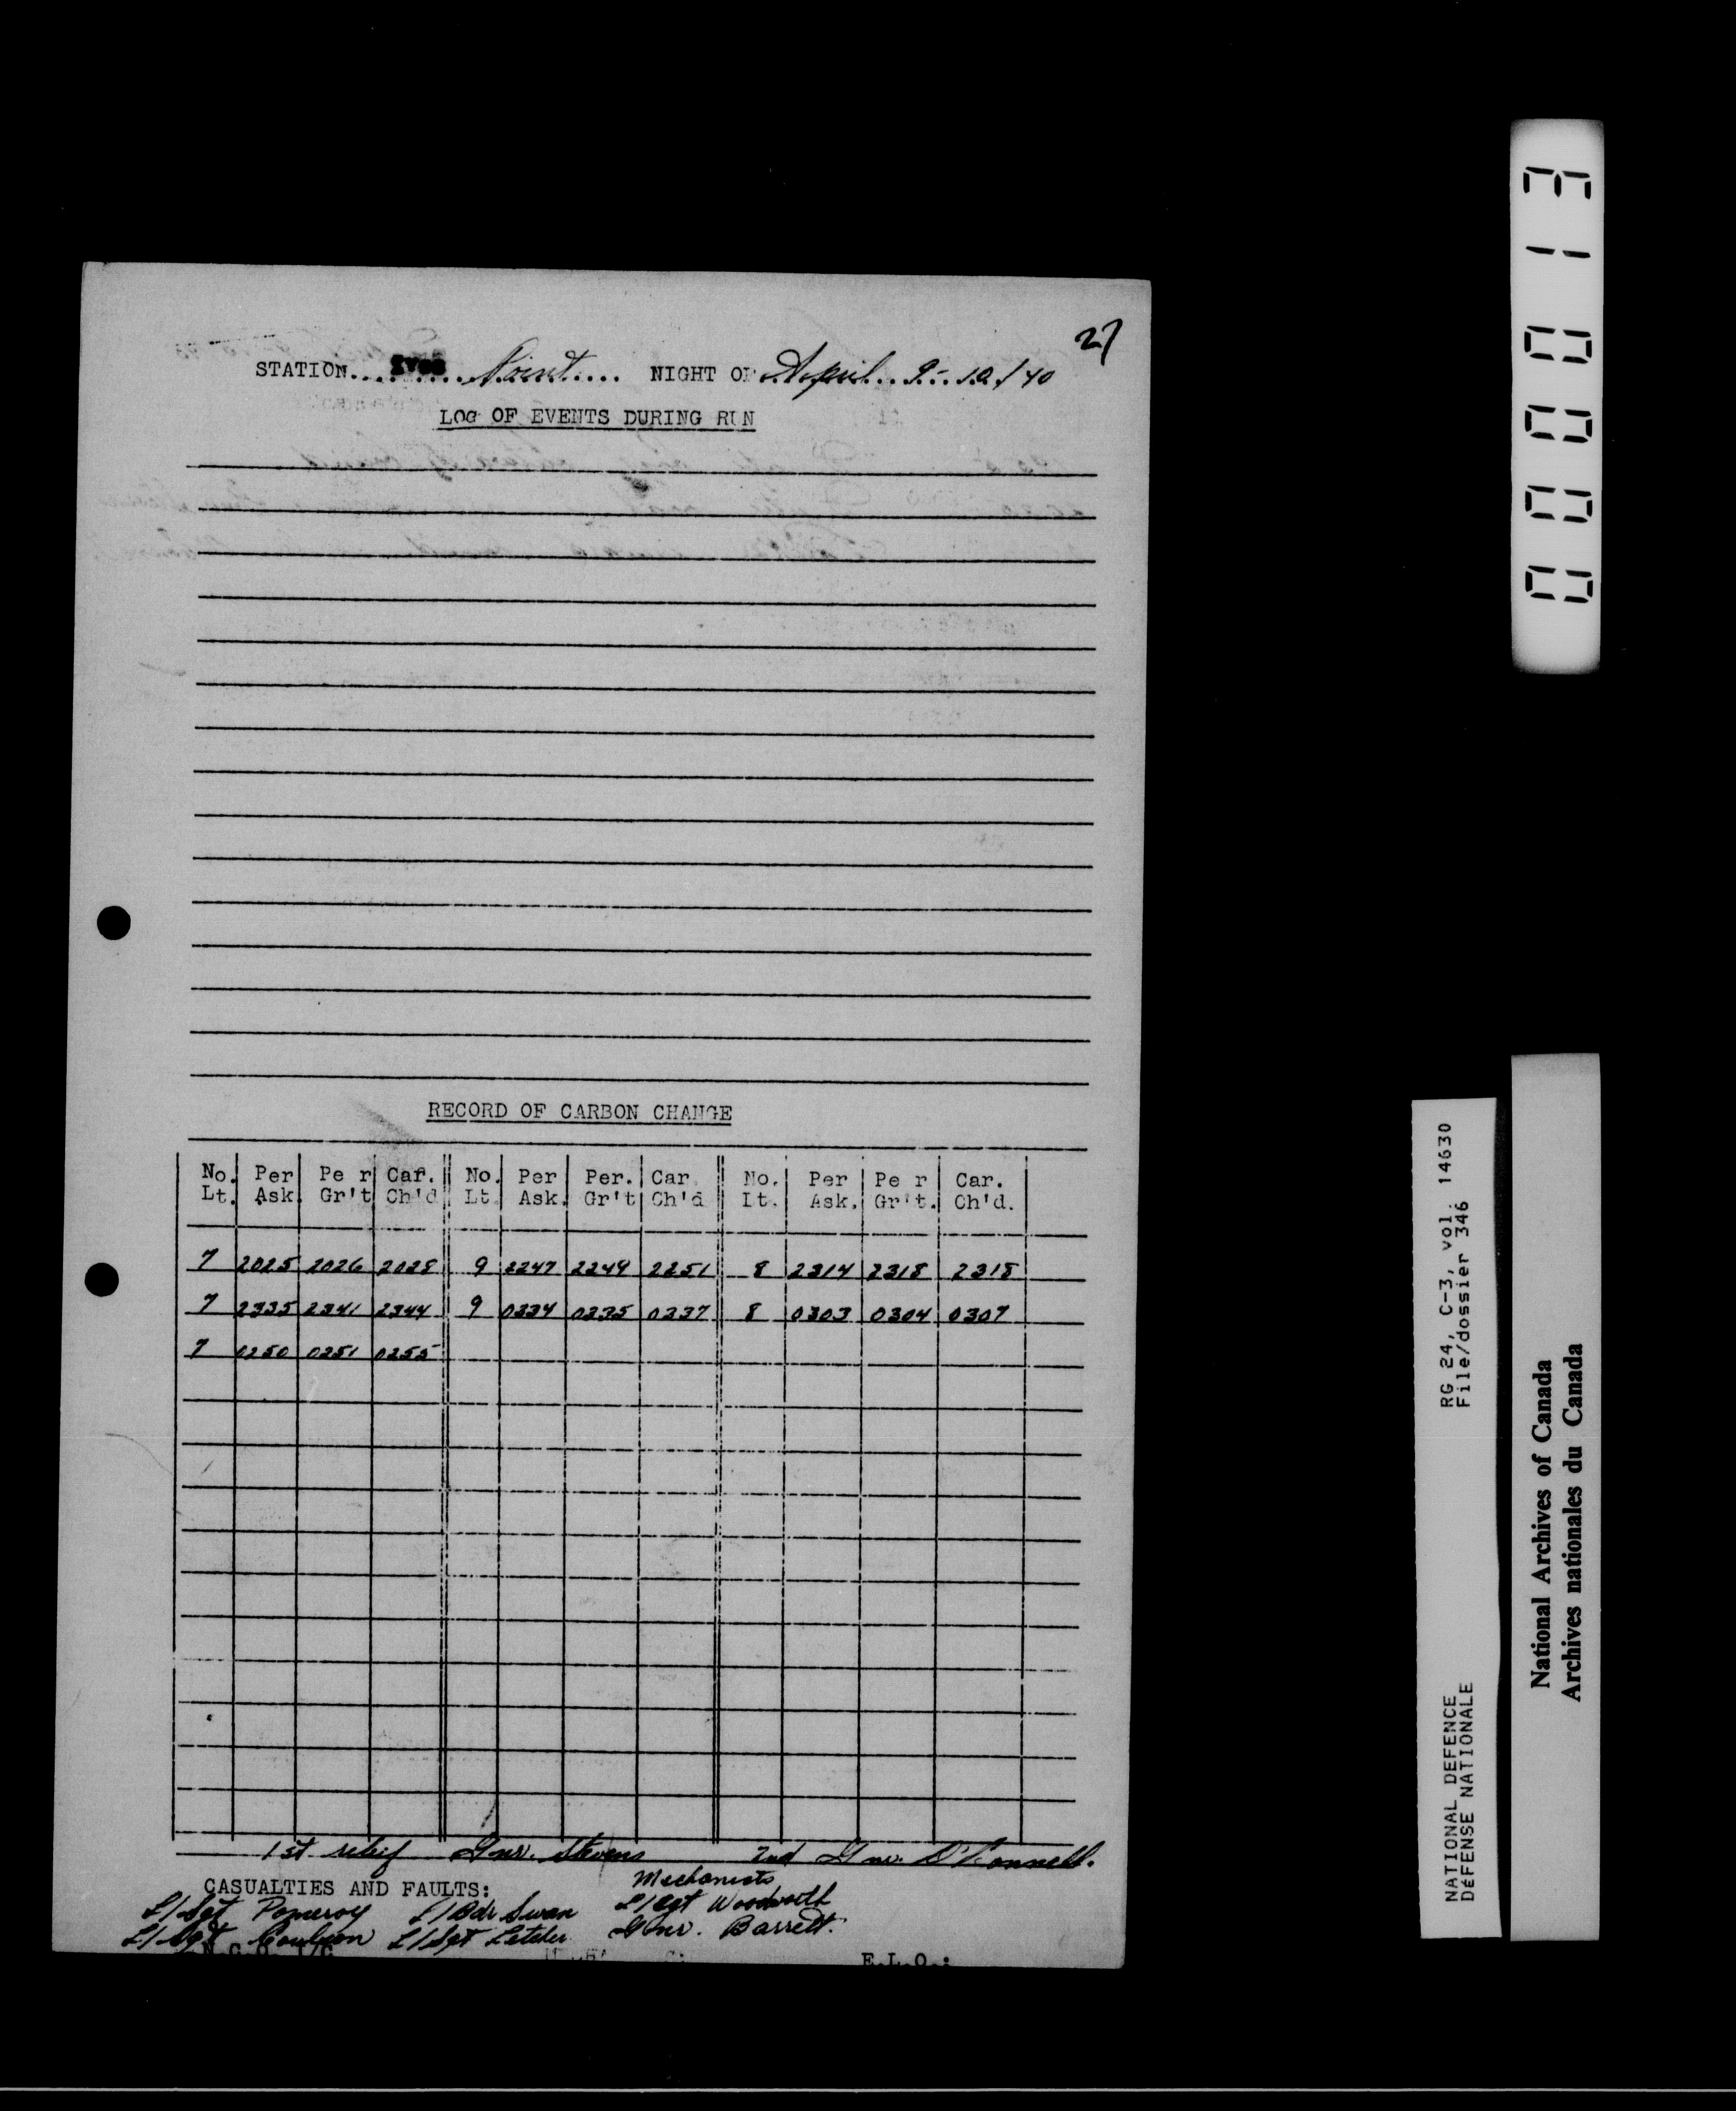 27
STATION.... Ives Point.... NIGHT OF April 9-10/40
LOG OF EVENTS DURING RUN
RECORD OF CARBON CHANGE
No. Lt. Per Ask. Per Gr't Car. Ch'd No. Lt. Per Ask. Per. Gr't Car. Ch'd No. Lt. Per Ask. Per Gr't. Car. Ch'd.
7 2025 2026 2028 9 2247 2249 2251 8 2314 2318 2318
7 2335 2341 2344 9 0234 0235 0237 8 0303 0304 0307
7 0250 0251 0255
1st relief Gnr. Stevens 2nd Gnr. O'Connell.
Mechanists
CASUALTIES AND FAULTS:
L/Sgt Pomeroy L/Bdr Swan L/Sgt Woodworth
L/Sgt Coulson L/Sgt Gnr. Barrett.
N.C.O. I/C E.L.O.:
000013
RG 24, C-3, vol. 14630
File/dossier 346
NATIONAL DEFENCE
DÉFENSE NATIONALE
National Archives of Canada
Archives nationales du Canada